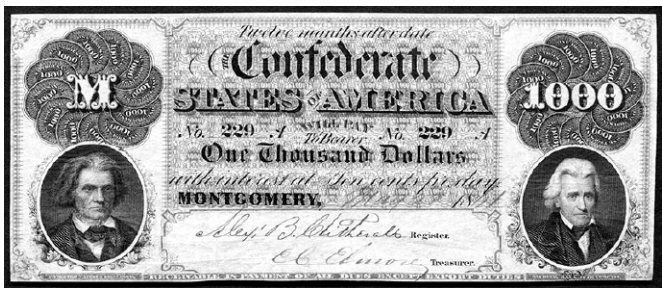 Twelve months after date
the Confederate
M
STATES OF AMERICA
1000
No. 229 A
WILL PAY
To Bearer
No. 229 A
One Thousand Dollars
with interest at Ten cents per day
MONTGOMERY,
18
Alex B. Clitherall Register.
E C Elmore Treasurer.
RECEIVABLE IN PAYMENT OF ALL DUES EXCEPT EXPORT DUTIES